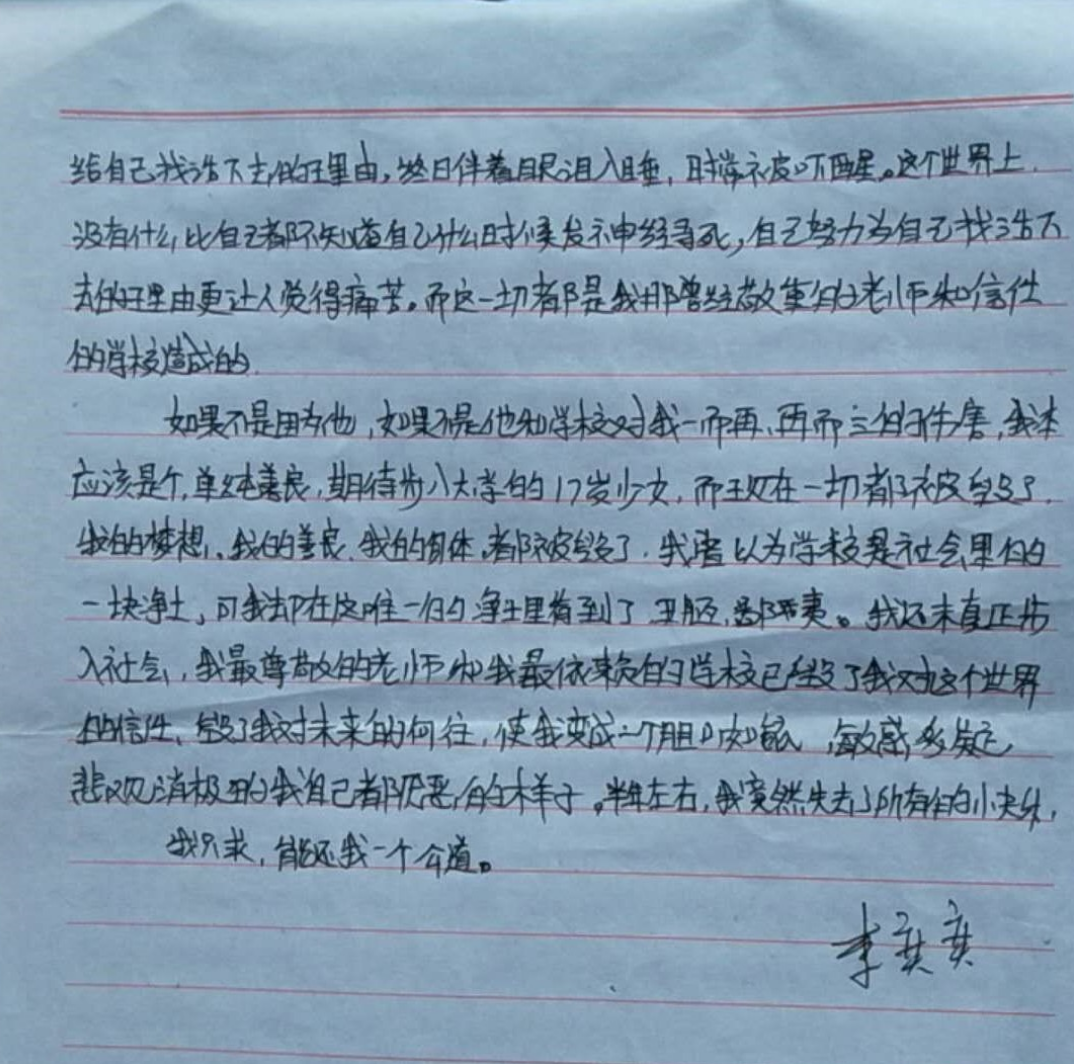 给自己找活下去的理由,终日伴着眼泪入睡,时常被吓醒。这个世界上
没有什么比自己都不知道自己什么时候发神经寻死,自己努力为自己找活下
去的理由更让人觉得痛苦。而这一切都是我那曾经敬重的老师和信任
的学校造成的.
如果不是因为他,如果不是他和学校对我一而再、再而三的伤害,我本
应该是个,单纯善良,期待步入大学的17岁少女,而现在一切都被毁了,
我的梦想、我的善良、我的身体,都被毁了.我曾以为学校是社会里的
一块净土,可我却在这唯一的净土里看到了丑陋,鄙夷。我还未真正步
入社会,我最尊敬的老师和我最依赖的学校已毁了我对这个世界
的信任、毁了我对未来的向往,使我变成一个胆小如鼠,敏感多疑
悲观消极到我自己都厌恶的样子。半年左右,我突然失去了所有的小失
我只求,能还我一个公道。
李奕奕